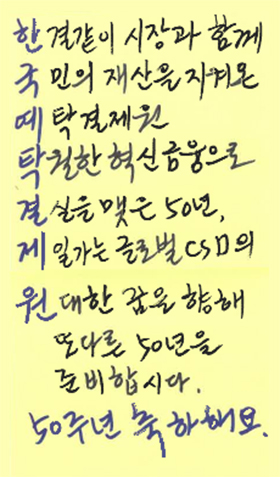 한결같이 시장과 함께
국민의 재산을 지켜온
예탁결제원
탁월한 혁신금융으로
결실을 맺은 50년,
제일가는 글로벌 CSD의
원대한 꿈을 향해
또다른 50년을
준비합시다.
50주년 축하해요.